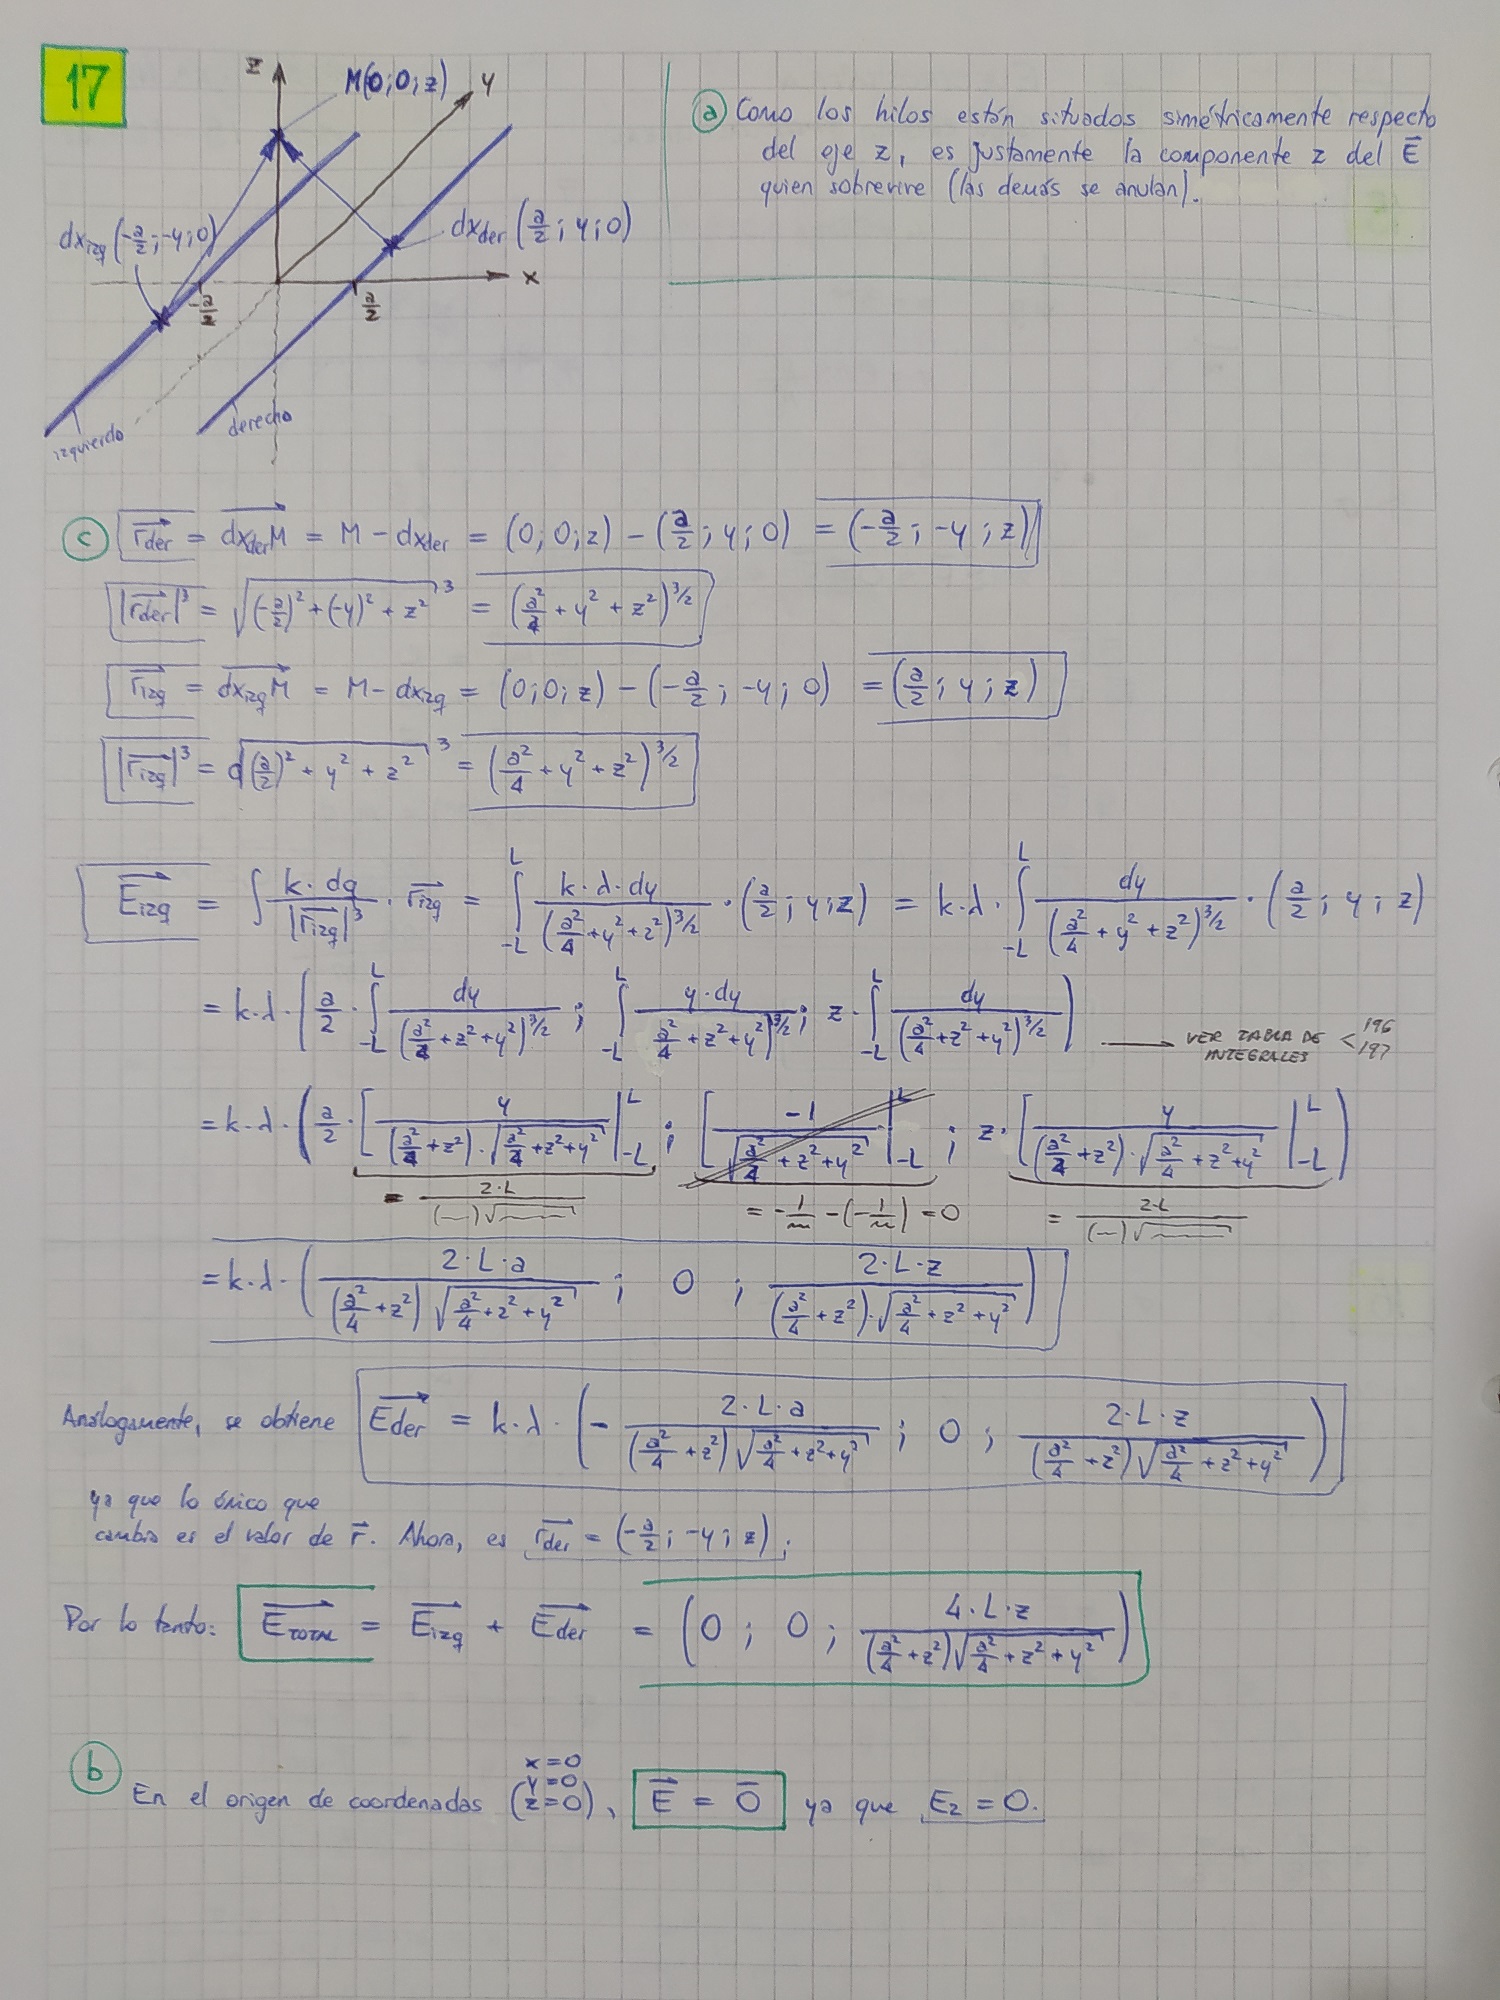 17
z
M(0;0;z)
y
dx_izq (-a/2; -y; 0)
dx_der (a/2; y; 0)
x
-a/2
a/2
izquierdo
derecho
ⓐ Como los hilos están situados simétricamente respecto
del eje z, es justamente la componente z del E⃗
quien sobrevive (las demás se anulan).
ⓒ r_der⃗ = dx_der M⃗ = M - dx_der = (0; 0; z) - (a/2; y; 0) = (-a/2; -y; z)
|r_der⃗|³ = √((-a/2)² + (-y)² + z²)³ = (a²/4 + y² + z²)^3/2
r_izq⃗ = dx_izq M⃗ = M - dx_izq = (0; 0; z) - (-a/2; -y; 0) = (a/2; y; z)
|r_izq⃗|³ = √((a/2)² + y² + z²)³ = (a²/4 + y² + z²)^3/2
E_izq⃗ = ∫ k·dq / |r_izq⃗|³ · r_izq⃗ = ∫_-L^L k·λ·dy / (a²/4 + y² + z²)^3/2 · (a/2; y; z) = k·λ· ∫_-L^L dy / (a²/4 + y² + z²)^3/2 · (a/2; y; z)
= k·λ· (a/2 · ∫_-L^L dy / (a²/4 + z² + y²)^3/2 ; ∫_-L^L y·dy / (a²/4 + z² + y²)^3/2 ; z· ∫_-L^L dy / (a²/4 + z² + y²)^3/2)
VER TABLA DE INTEGRALES < 196 197
= k·λ· (a/2 · [y / (a²/4 + z²)·√(a²/4 + z² + y²) |_-L^L ; [-1 / √(a²/4 + z² + y²) |_-L^L ; z· [y / (a²/4 + z²)·√(a²/4 + z² + y²) |_-L^L)
= 2·L / (—)√—
= -1/m - (-1/m) = 0
= 2·L / (—)√—
= k·λ· (2·L·a / (a²/4 + z²)√(a²/4 + z² + y²) ; 0 ; 2·L·z / (a²/4 + z²)·√(a²/4 + z² + y²))
Análogamente, se obtiene E_der⃗ = k·λ· (- 2·L·a / (a²/4 + z²)√(a²/4 + z² + y²) ; 0 ; 2·L·z / (a²/4 + z²)√(a²/4 + z² + y²))
ya que lo único que
cambia es el valor de r⃗. Ahora, es r_der⃗ = (-a/2; -y; z).
Por lo tanto: E_TOTAL⃗ = E_izq⃗ + E_der⃗ = (0 ; 0 ; 4·L·z / (a²/4 + z²)√(a²/4 + z² + y²))
ⓑ
x=0
y=0
En el origen de coordenadas (z=0), E⃗ = 0̄ ya que E_z = 0.